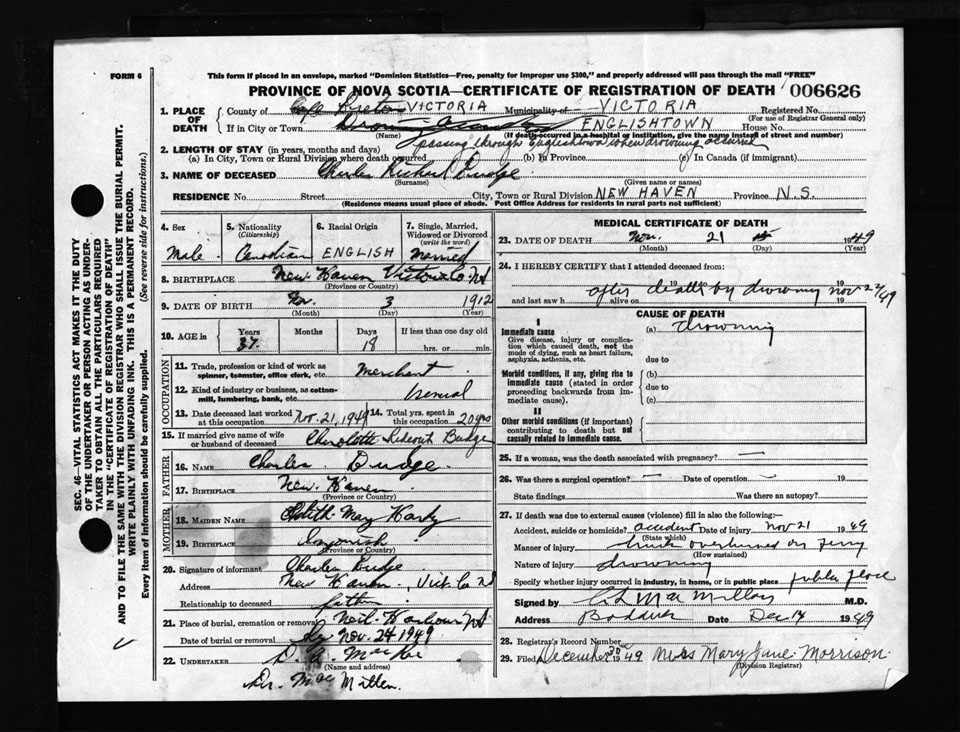 FORM 6
This form if placed in an envelope, marked "Dominion Statistics—Free, penalty for improper use $300," and properly addressed will pass through the mail "FREE"
PROVINCE OF NOVA SCOTIA—CERTIFICATE OF REGISTRATION OF DEATH 006626
1. PLACE OF DEATH
County of Cape Breton VICTORIA Municipality of VICTORIA Registered No.
(For use of Registrar General only)
If in City or Town ENGLISHTOWN House No.
(Name) (If death occurred in a hospital or institution, give the name instead of street and number)
2. LENGTH OF STAY (in years, months and days) passing through Englishtown when drowning occurred
(a) In City, Town or Rural Division where death occurred (b) In Province (c) In Canada (if immigrant)
3. NAME OF DECEASED Charles Richard Budge
(Surname) (Given name or names)
RESIDENCE No. Street City, Town or Rural Division NEW HAVEN Province N.S.
(Residence means usual place of abode. Post Office Address for residents in rural parts not sufficient)
4. Sex Male
5. Nationality (Citizenship) Canadian
6. Racial Origin ENGLISH
7. Single, Married, Widowed or Divorced (write the word) Married
8. BIRTHPLACE New Haven Victoria Co. NS
(Province or Country)
9. DATE OF BIRTH Nov. 3 1912
(Month) (Day) (Year)
10. AGE in Years 37 Months Days 18 If less than one day old hrs. or min.
OCCUPATION
11. Trade, profession or kind of work as spinner, teamster, office clerk, etc. Merchant
12. Kind of industry or business, as cotton-mill, lumbering, bank, etc.
13. Date deceased last worked at this occupation Nov. 21, 1949
14. Total yrs. spent in this occupation 20 yrs
15. If married give name of wife or husband of deceased Rideout Budge
FATHER
16. NAME Charles Budge.
17. BIRTHPLACE New Haven
(Province or Country)
MOTHER
18. MAIDEN NAME Edith Mary Hardy
19. BIRTHPLACE Ingonish
(Province or Country)
20. Signature of informant Charles Budge
Address New Haven, Vict. Co NS
Relationship to deceased father
21. Place of burial, cremation or removal Neil Harbour NS
Date of burial or removal Nov. 24 1949
22. UNDERTAKER
(Name and address)
Dr. MacMillan.
MEDICAL CERTIFICATE OF DEATH
23. DATE OF DEATH Nov. 21 st 1949
(Month) (Day) (Year)
24. I HEREBY CERTIFY that I attended deceased from:
19 to 19
after death by drowning Nov 22/49
and last saw h alive on 19
CAUSE OF DEATH
I
Immediate cause (a) drowning
Give disease, injury or complication which caused death, not the mode of dying, such as heart failure, asphyxia, asthenia, etc.
due to
Morbid conditions, if any, giving rise to immediate cause (stated in order proceeding backwards from immediate cause).
(b)
due to
(c)
II
Other morbid conditions (if important) contributing to death but not causally related to immediate cause.
25. If a woman, was the death associated with pregnancy? —
26. Was there a surgical operation? — Date of operation 19
State findings Was there an autopsy?
27. If death due to external causes (violence) fill in also the following:-
Accident, suicide or homicide? accident Date of injury Nov 21 1949
(State which)
Manner of injury truck overturned on ferry
(How sustained)
Nature of injury drowning
Specify whether injury occurred in industry, in home, or in public place public place
Signed by C L MacMillan M.D.
Address Baddeck Date Dec 14 1949
28. Registrar's Record Number
29. Filed December 30th 1949 Miss Mary Jane Morrison.
(Division Registrar)
SEC. 46—VITAL STATISTICS ACT MAKES IT THE DUTY
OF THE UNDERTAKER OR PERSON ACTING AS UNDER-
TAKER TO OBTAIN ALL THE PARTICULARS REQUIRED
IN THE "CERTIFICATE OF REGISTRATION OF DEATH"
AND TO FILE THE SAME WITH THE DIVISION REGISTRAR WHO SHALL ISSUE THE BURIAL PERMIT.
WRITE PLAINLY WITH UNFADING INK. THIS IS A PERMANENT RECORD.
Every item of information should be carefully supplied. (See reverse side for instructions.)